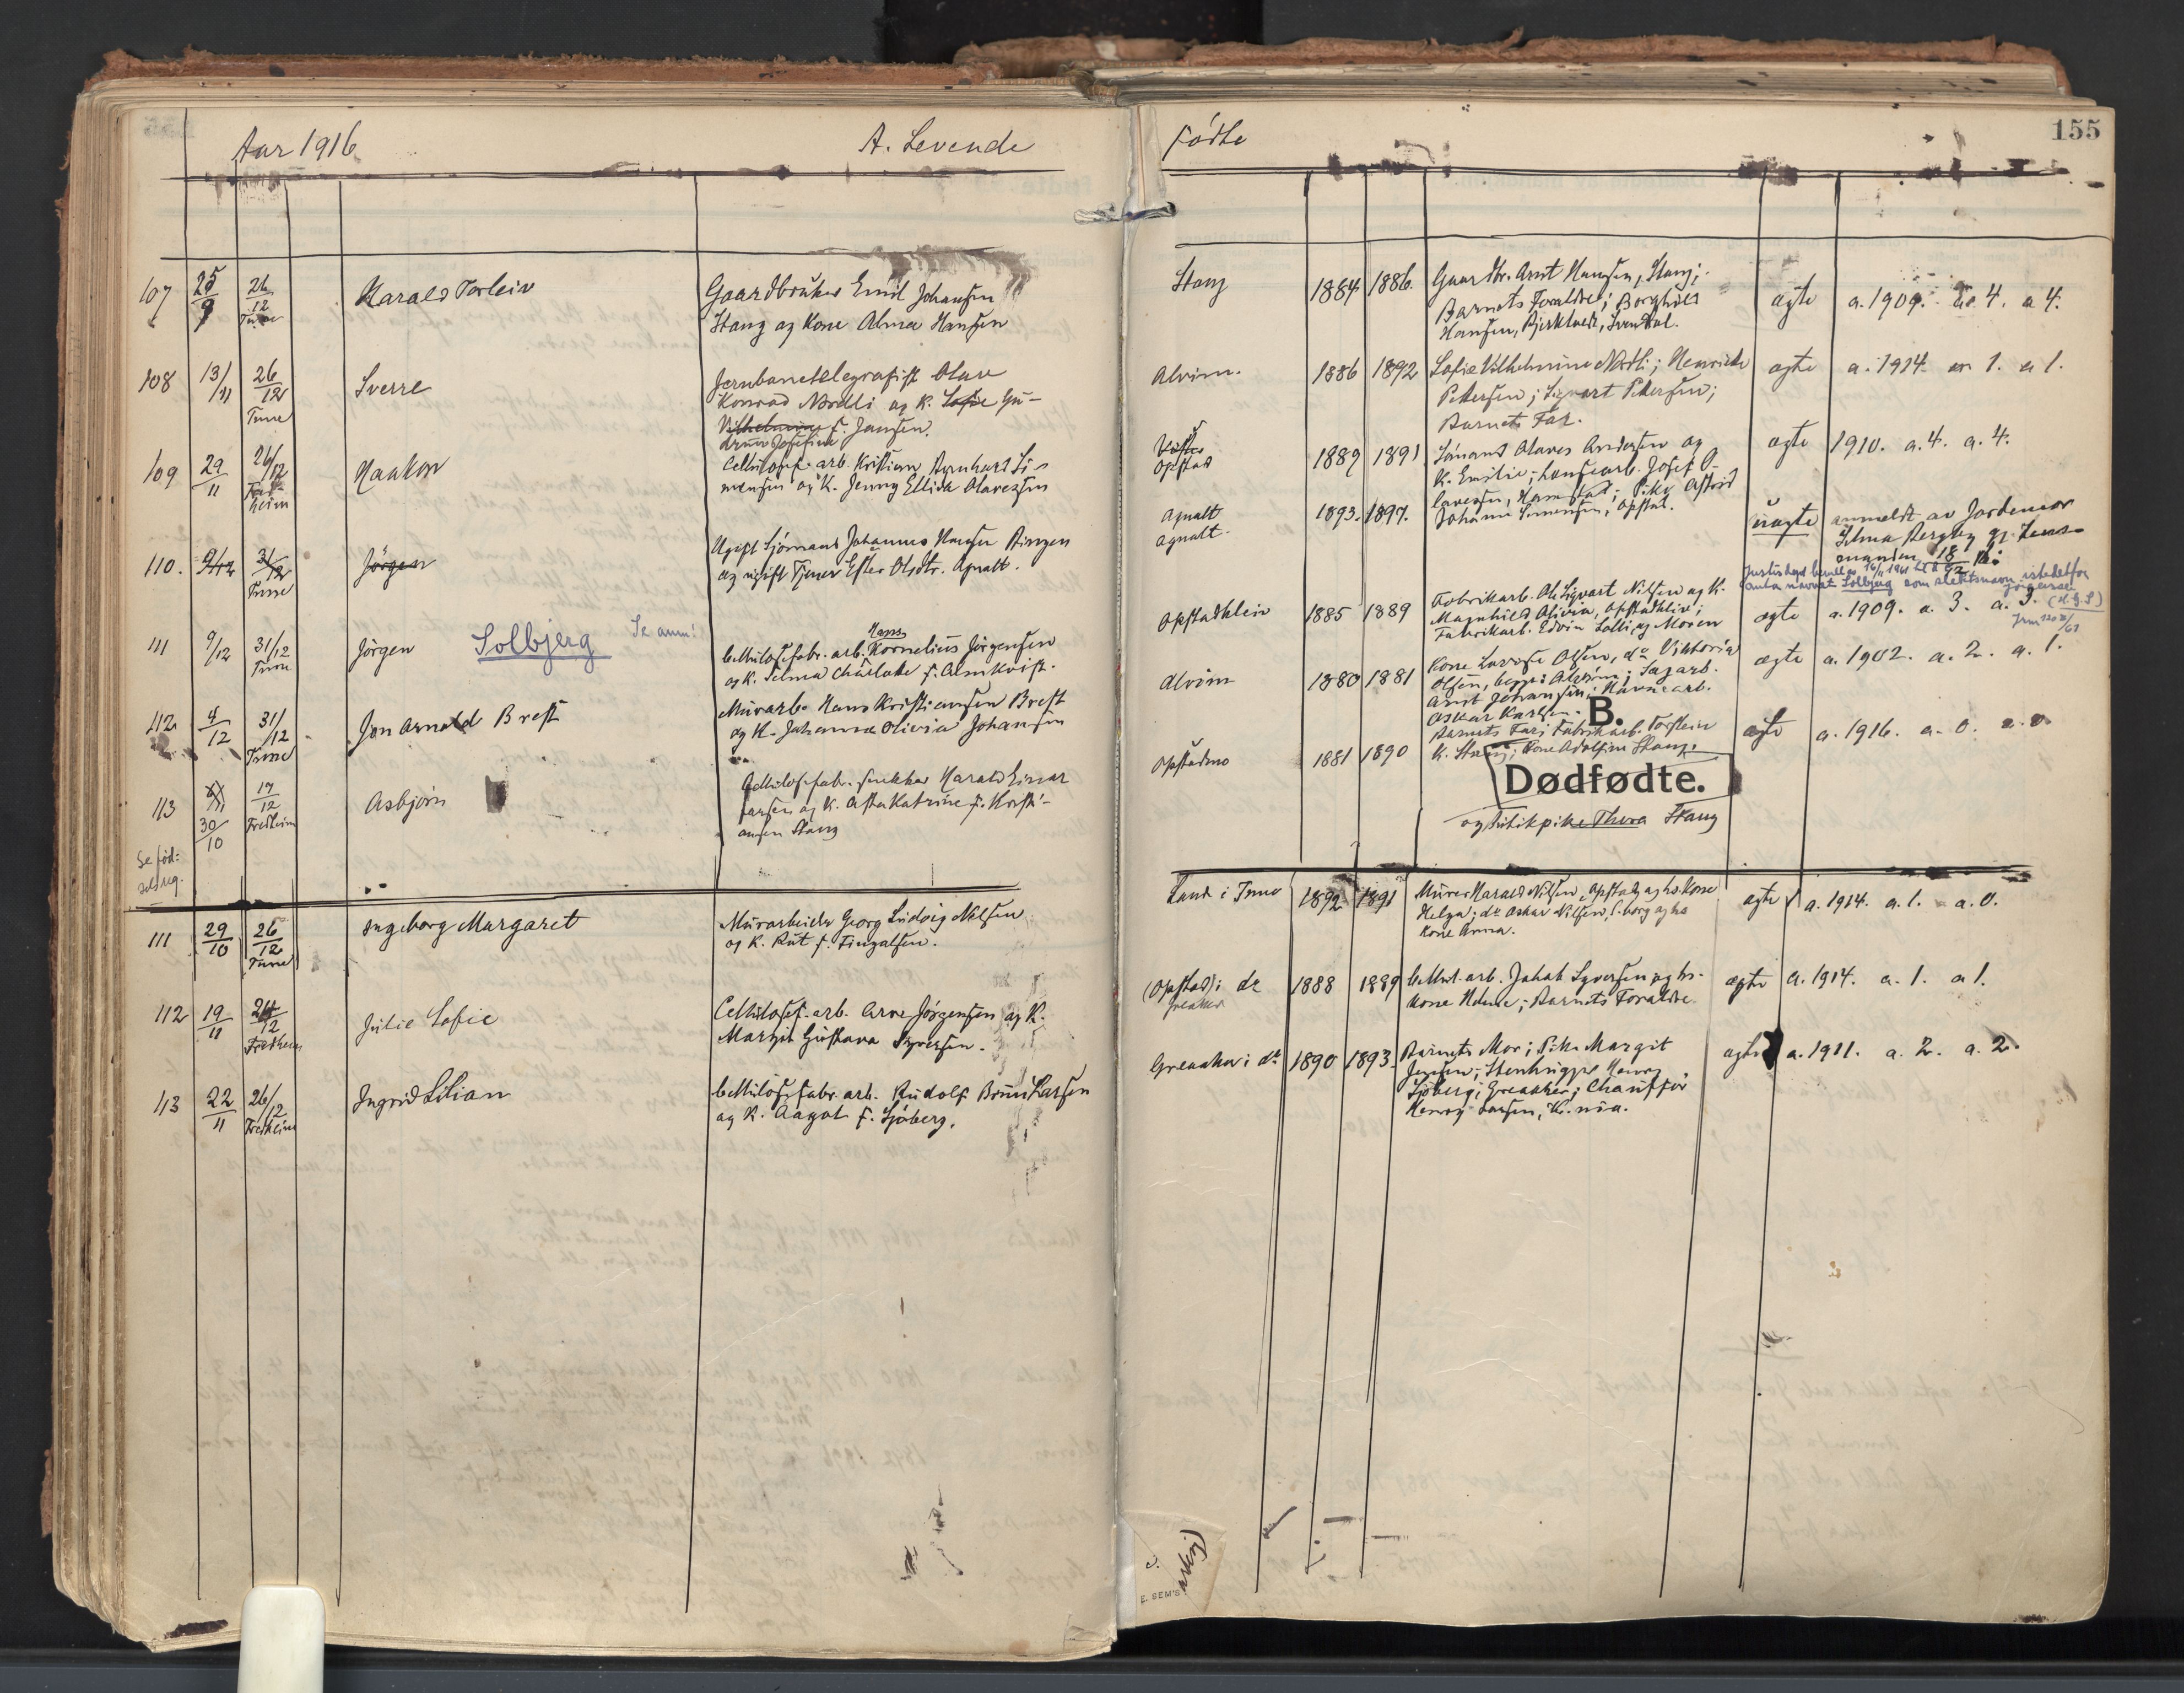 Aar 1916
A. Levende
Fødte
155
107
25/9
26/12
Tune
Harald Torleiv
Gaardbruker Emil Johansen
Stang og Kone Alma Hansen
Stang
1884
1886
Gaardbr. Arnt Hansen, Stang;
Barnets Foraldre; Borghild
Hansen,
ægte
a. 1909. a. 4. a 4.
108
13/11
26/12
Tune
Sverre
Jernbanetelegrafist Olav
Konrad Nordli og K. Sofie Gu-
Vilhelmine f. Jansen.
drun Josefine
Alvim.
1886
1892
Sofie Vilhelmine Nordli; Henriette
Petersen; Sigvart Petersen;
Barnets Far.
ægte
a. 1914. a 1. a 1.
109
29/11
26/12
Fredheim
Haakon
Cellulosef. arb. Kristian Bernhard Si-
mensen og K. Jenny Ellida Olavesen
Opstad
1889
1891
Sømand Olaves Andersen og
K. Emilie; Josef O-
lavesen, Pike Astrid
Johanne Simensen, Opstad.
ægte
1910. a. 4. a. 4.
110.
9/12
31/12
Tune
Jørgen
Ugift Sjømand Johannes Hansen
og ugift Tjener Ester Olsdtr. Agnalt.
Agnalt
Agnalt.
1893.
1897.
uægte
anmeldt av Jordemor
18/12 16.
Justisdep bevill av 16/11 1961 til å
anta navnet Solbjerg som slektsnavn istedetfor
Jørgensen
111
9/12
31/12
Tune
Jørgen Solbjerg
Se anm!
Hans
Cellulosefabr. arb. Kornelius Jørgensen
og K. Selma Charlotte f. Almkvist.
Opstadkleiv
1885
1889
Fabrikarb. Ole Sigvart Nilsen og K.
Magnhild Olivia, Opstadkleiv;
Fabrikarb. Edvin Lolli og Moren
ægte
a. 1909. a. 3. a. 3.
112
4/12
31/12
Tune
Jon Arnold Brest
Murarb. Hans Kristiansen Brest
og K. Johanna Olivia Johansen
Alvim
1880
1881
Kone Lovise Olsen, do Viktoria
Olsen, begge Alvim; Sagarb.
Arnt Johansen; Havnearb.
Oskar Karlsen.
ægte
a. 1902. a. 2. a. 1.
113
30/10
17/12
Fredheim
Asbjørn
Cellulosefabr. snekker Harald Einar
Larsen og K. Asta Katrine f. Kristi-
ansen Stang
Opstadmo
1881
1890
Barnets Far; Fabrikarb. Torstein
K. Stang; Kone Adolfine Stang;
B.
Dødfødte.
og Butikpike Thora Stang
ægte
a. 1916. a. 0. a. 0
Se fød:
selsreg.
111
29/10
26/12
Tune
Ingeborg Margaret
Murarbeider Georg Ludvig Nilsen
og K. Rut f. Fingalsen.
Lande i Tune
1892
1891
Murer Harald Nilsen, Opstad og hs Kone
Helga; do Oskar Nilsen, S.borg og hs
Kone Anna.
ægte
a. 1914. a. 1. a. 0.
112
19/11
26/12
Fredheim
Julie Sofie
Cellulosef. arb. Arne Jørgensen og K.
Margit Gustava Syversen.
(Opstad) i do
Greaaker
1888
1889
Cellul. arb. Jakob Syversen og hs.
Kone Helene; Barnets Foraldre
ægte
a. 1914. a. 1. a 1.
113
22/11
26/12
Fredheim
Ingrid Lilian
Cellulosefabr. arb. Rudolf Brun Larsen
og K. Aagot f. Sjøberg.
Greaaker i do
1890
1893.
Barnets Mor; Pike Margit
Jensen; Stenhugger Henry
Sjøberg; Greaaker; Chauffør
Henry Larsen, Kr.nia.
ægte
a. 1911. a. 2. a. 2.
E. SEM'S